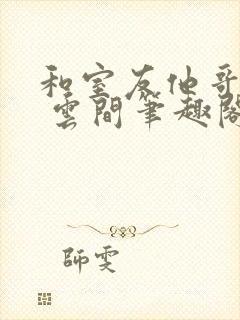 和室友他哥
雲間筆趣閣
師雯